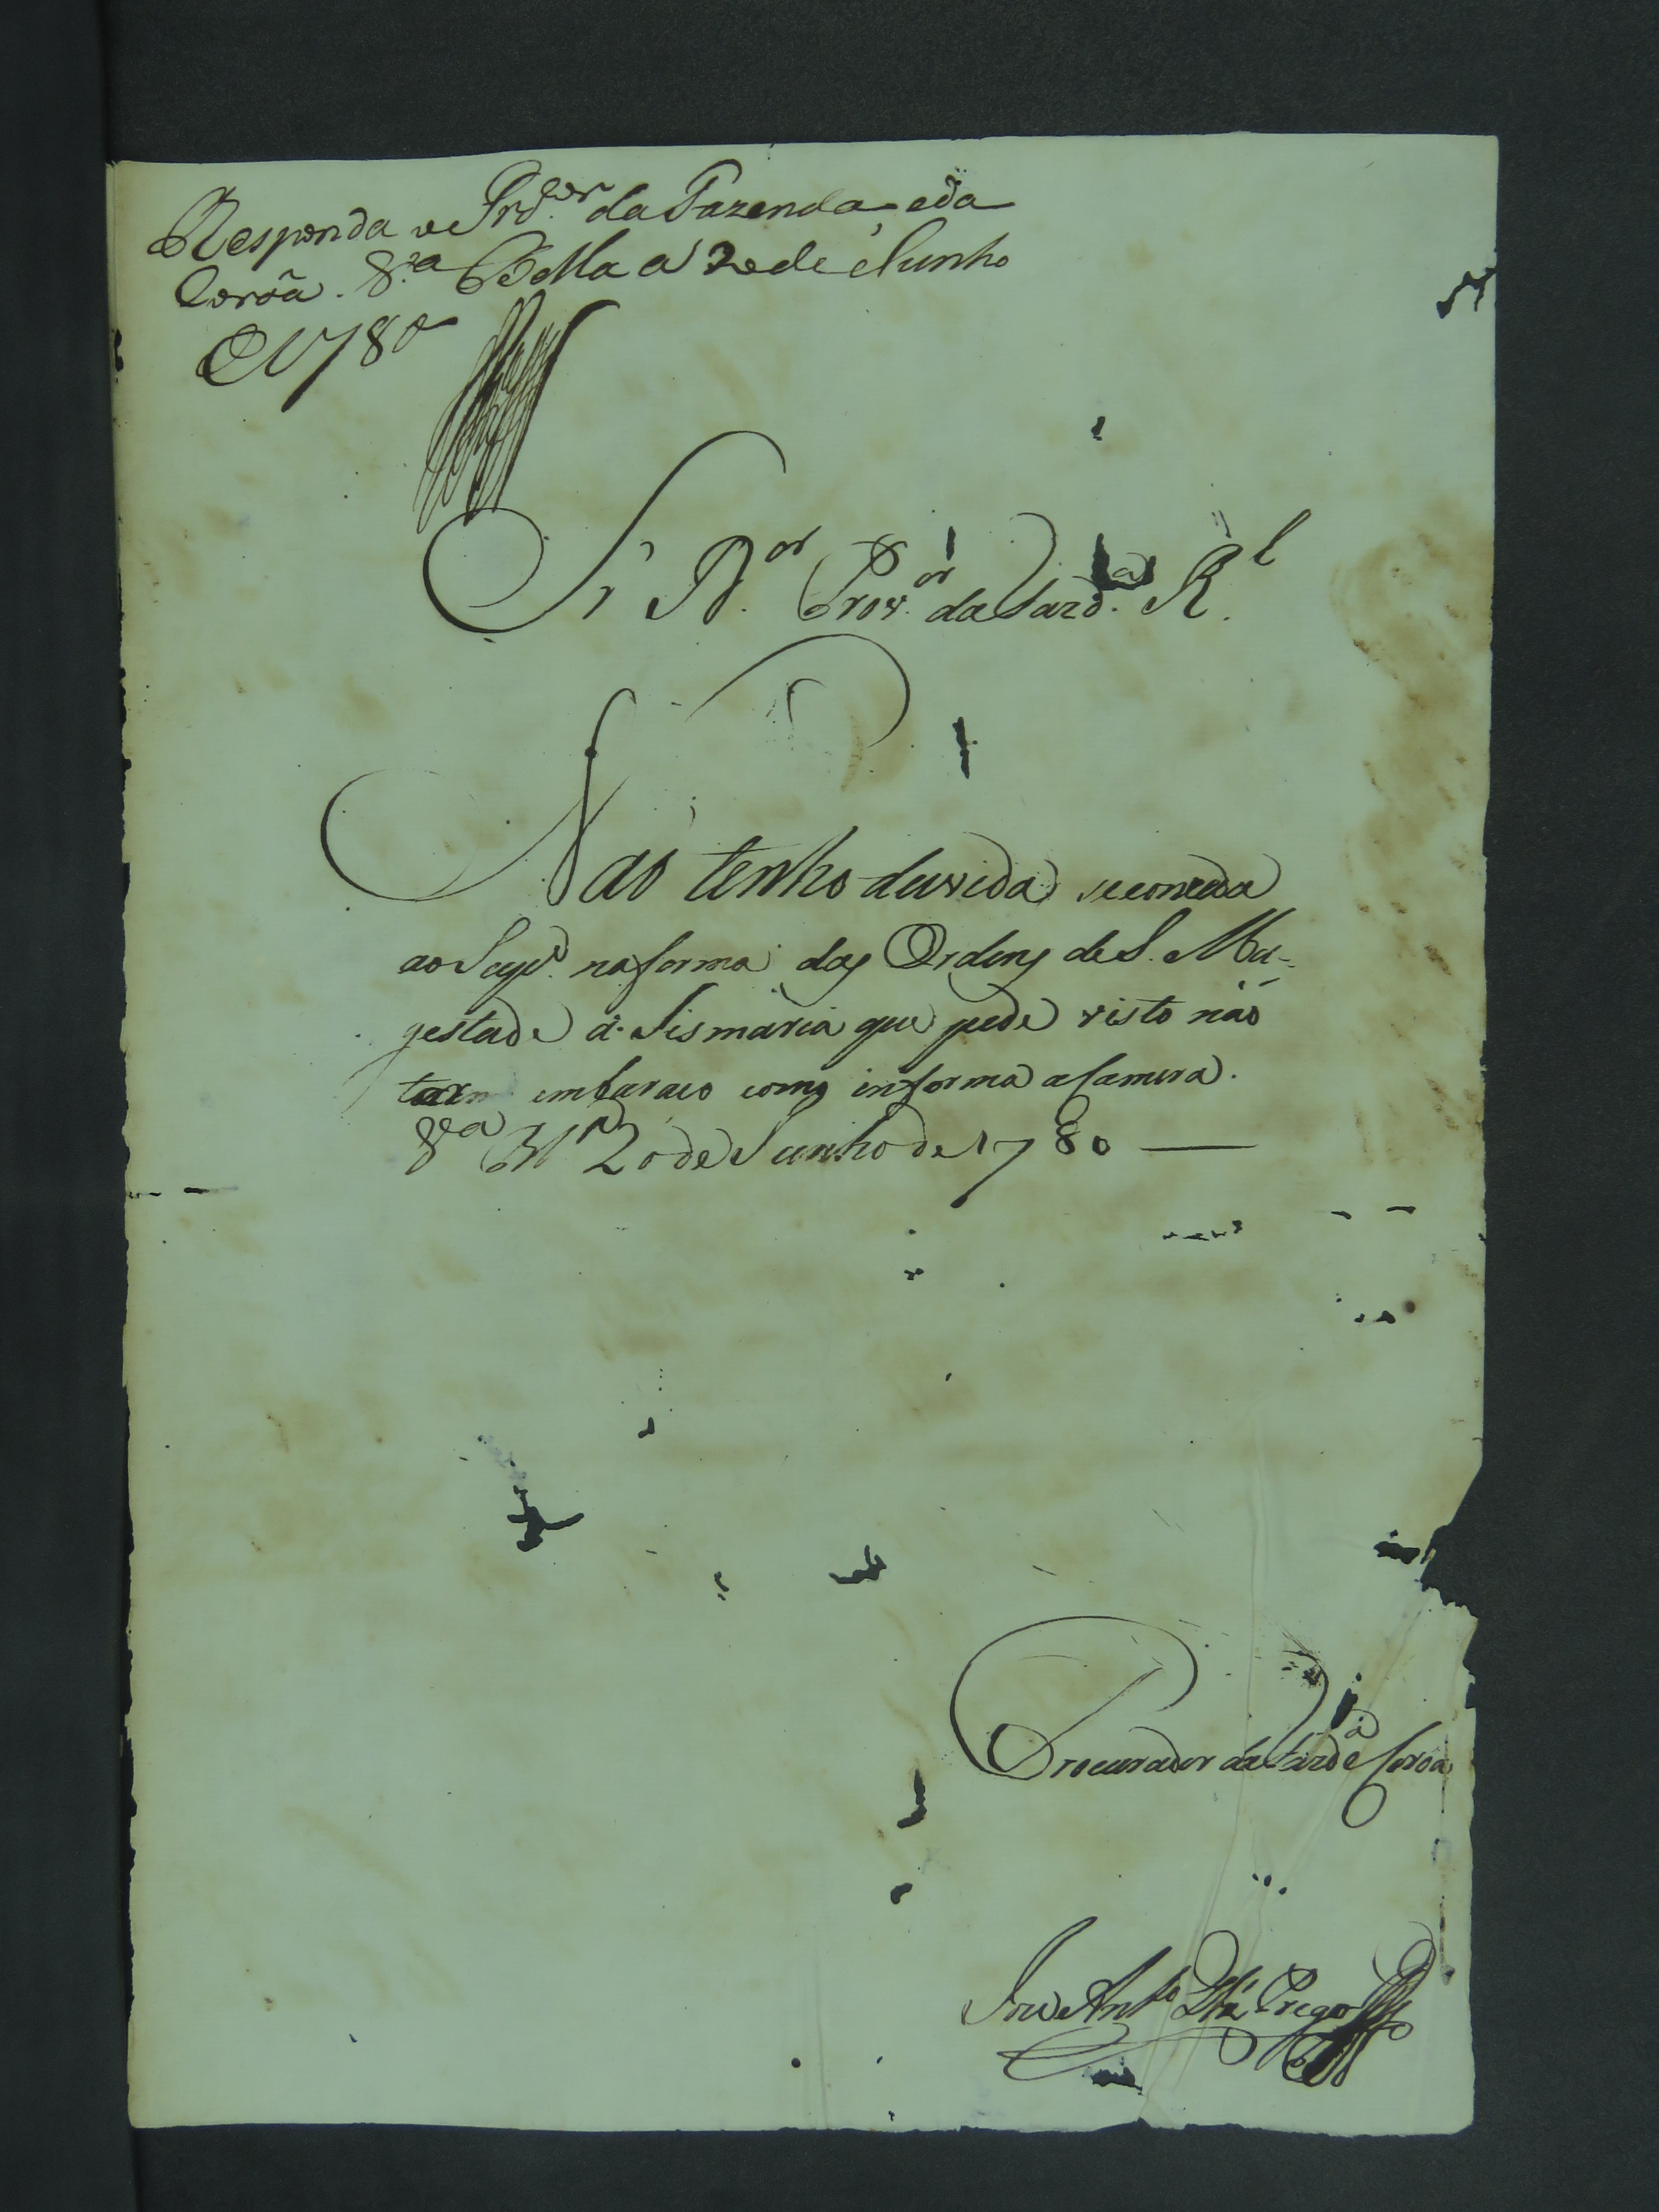 Responda o Prd.or da Fazenda e da
Coroâ. V.a Bella a 20 de Junho
de 1780
Sr. D.or Prov.or da Fazd.a R.l
Não tenho duvida se conceda
ao Sup.e na forma das Ordens de S. Ma-
gestade a Sismaria que pede visto não
ter embaraço como informa a Camera.
V.a B.a 20 de Junho de 1780
Procurador da Fazd.a e Coroa
Jose Ant.o Prego